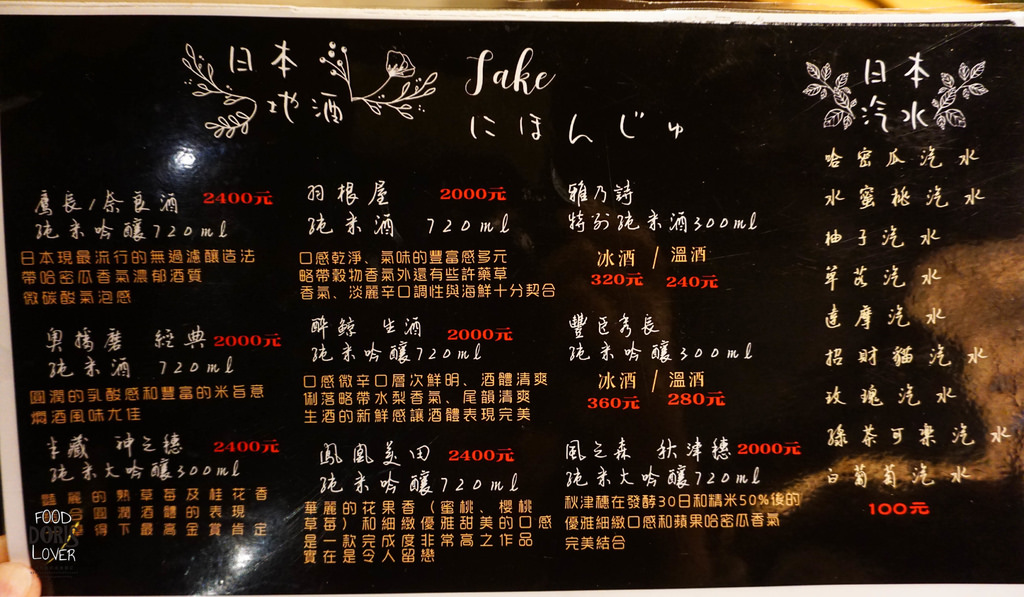 日本
地酒
Sake
にほんじゅ
鷹長/奈良酒 2400元
純米吟釀720ml
日本現最流行的無過濾釀造法
帶哈密瓜香氣濃郁酒質
微碳酸氣泡感
奧播磨 經典 2000元
純米酒 720ml
圓潤的乳酸感和豐富的米旨意
燗酒風味尤佳
半藏 神之穗 2400元
純米大吟釀300ml
豔麗的熟草莓及桂花香
圓潤酒體的表現
得下最高金賞肯定
羽根屋 2000元
純米酒 720ml
口感乾淨、氣味的豐富感多元
略帶穀物香氣外還有些許藥草
香氣、淡麗辛口調性與海鮮十分契合
醉鯨 生酒 2000元
純米吟釀720ml
口感微辛口層次鮮明、酒體清爽
俐落略帶水梨香氣、尾韻清爽
生酒的新鮮感讓酒體表現完美
鳳凰美田 2400元
純米吟釀720ml
華麗的花果香（蜜桃、櫻桃
草莓）和細緻優雅甜美的口感
是一款完成度非常高之作品
實在是令人留戀
雅乃詩
特別純米酒300ml
冰酒 / 溫酒
320元 240元
豐臣秀長
純米吟釀300ml
冰酒 / 溫酒
360元 280元
風之森 秋津穗 2000元
純米大吟釀720ml
秋津穗在發酵30日和精米50%後的
優雅細緻口感和蘋果哈密瓜香氣
完美結合
日本
汽水
哈密瓜汽水
水蜜桃汽水
柚子汽水
草莓汽水
達摩汽水
招財貓汽水
玫瑰汽水
綠茶可樂汽水
白葡萄汽水
100元
FOOD
DORIS
LOVER